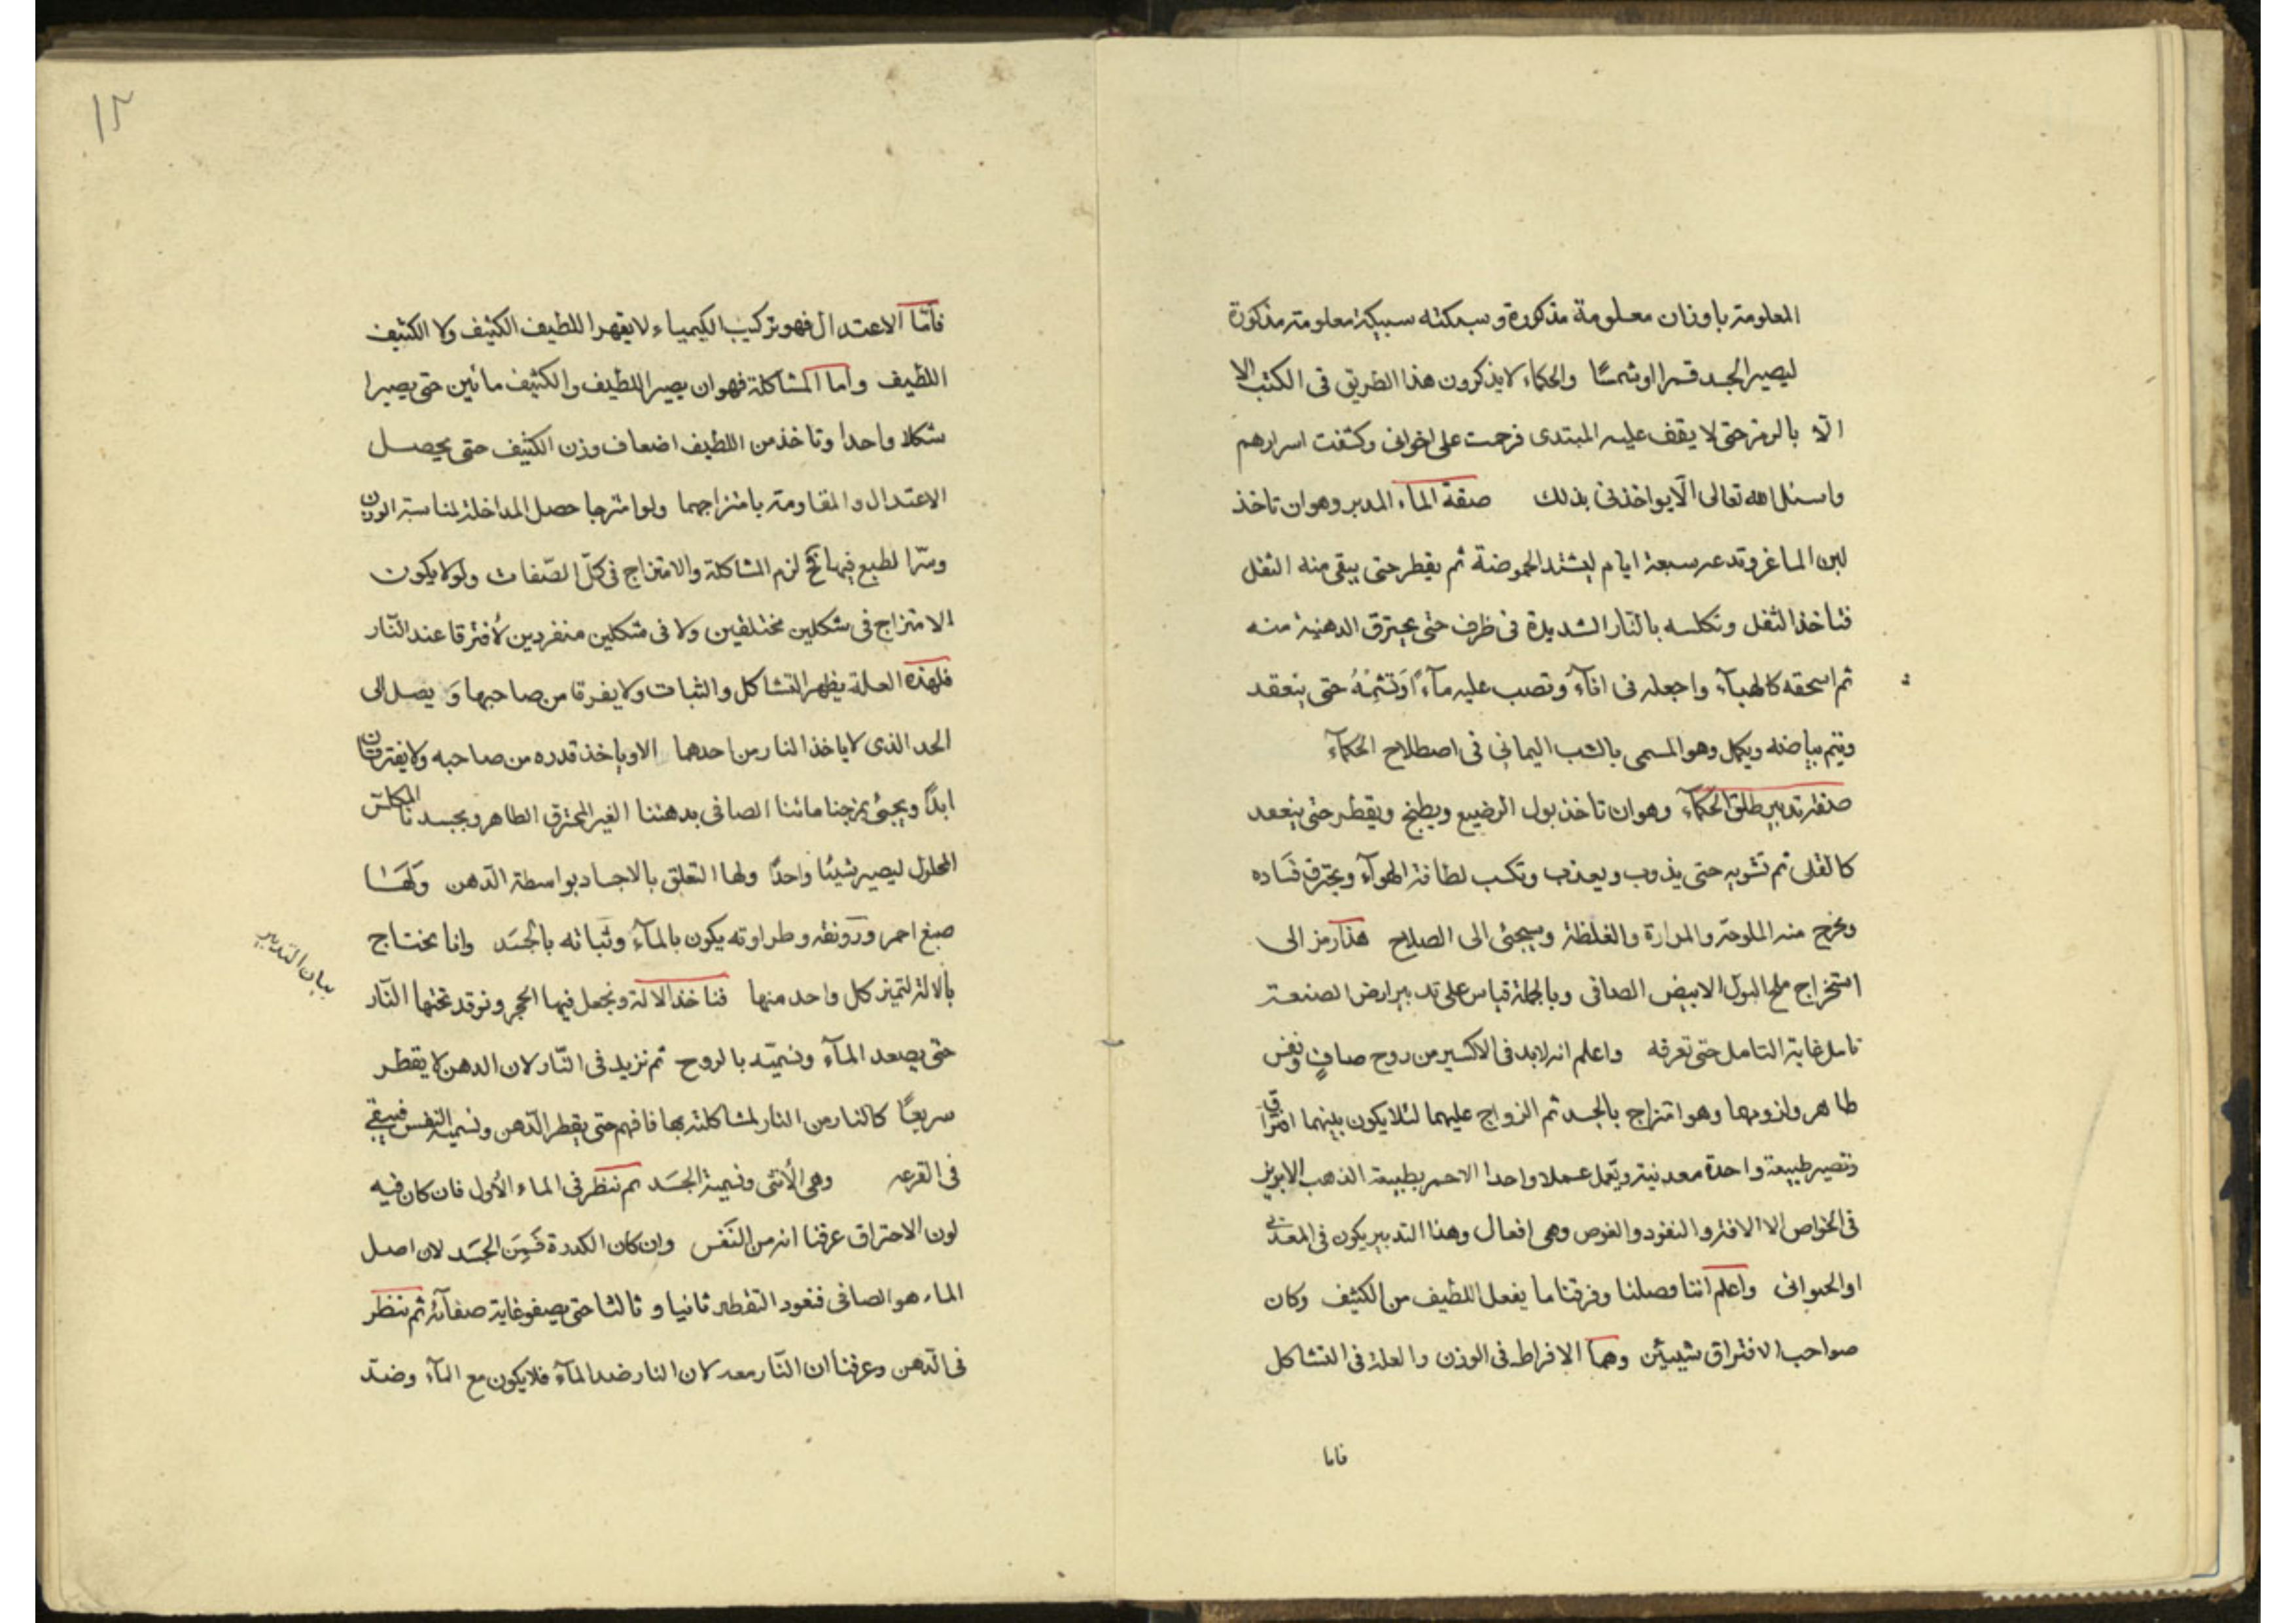 المعلومة باوزان معلومة مذكورة وسبكته سبيكة معلومة مذكورة
ليصير الجسد قمرا او شمسًا والحكماء لا يذكرون هذا الطريق فى الكتب الا
الا بالرمز حتى لا يقف عليه المبتدى فرحمت على اخوانى وكشفت اسرارهم
واسئل الله تعالى الّا يواخذنى بذلك صفة الماء المدبر وهو ان تاخذ
لبن الماغر وتدعه سبعة ايام ليشتد الحموضة ثم يقطر حتى يبقى منه الثفل
فتاخذ الثفل وتكلسه بالنار الشديدة فى ظرف حتى يحترق الدهنية منه
ثم اسحقه كالهبآء واجعله فى انآء وتصب عليه مآءً وَتشمّه حتى ينعقد
ويتم بياضه ويكمل وهو المسمى بالشب اليمانى فى اصطلاح الحكمآء
صفة تدبير طلق الحكمآء وهو ان تاخذ بول الرضيع ويطبخ ويقطر حتى ينعقد
كالقلى ثم تشويه حتى يذوب ويعذب وتكسب لطافة الهوآء ويحترق فَساده
ويخرج منه الملوحة والمرارة والغلظة ويجئ الى الصلاح هذا رمز الى
استخراج ملح البول الابيض الصافى وبالجملة قياس على تدبير ارض الصنعة
تامل غاية التامل حتى تعرفه واعلم انه لابد فى الاكسير من روح صافٍ ونفس
طاهر وازومها وهو امتزاج بالجسد ثم الزواج عليهما لئلا يكون بينهما افتراق
وتصير طبيعة واحدة معدنية ويعمل عملا واحدا الاحمر بطبيعة الذهب الابريز
فى الخواص الا الافتر والنفود والغوص وهى افعال وهذا التدبير يكون فى المعدنى
او الحيوانى واعلم اننا وصلنا وفرقنا ما يفعل اللطيف من الكثيف وكان
صواحب الافتراق شيئين وهما الافراط فى الوزن والعلة فى التشاكل
فاما
١٢
فأمّا الاعتدال فهو تركيب الكيمياء لا يقهر اللطيف الكثيف ولا الكثيف
اللطيف واما المشاكلة فهو ان يصير اللطيف والكثيف مائين حتى يصيرا
شكلا واحدا وتاخذ من اللطيف اضعاف وزن الكثيف حتى يحصل
الاعتدال والمقاومة بامتزاجهما ولو امتزجا حصل المداخلة لمناسبة الوزن
وسرّ الطبع فيها تح لزم المشاكلة والامتزاج فى كلّ الصّفات ولو لا يكون
الامتزاج فى شكلين مختلفين ولا فى شكلين منفردين لأفترقا عند النّار
فلهذه العلة يظهر التشاكل والثبات ولا يفرقا من صاحبها وَ يصل الى
الحد الذى لا ياخذ النار من احدهما الا وياخذ قدره من صاحبه ولا يفترقان
ابدًا ويجئ بمزجنا مائنا الصافى بدهننا الغير المحترق الطاهر وبجسدنا المكلس
المحلول ليصير شيئا واحدًا ولها التعلق بالاجساد بواسطة الدّهن وَلهَا
صبغ احمر وروَنقه وطراوته يكون بالمآء وثباته بالجسَد وانا نحتاج
بالالة لتميز كل واحد منها فناخذ الالة ونجعل فيها الحجر ونوقد تحتها النّار
بيان التدبير
حتى يصعد المآء ونسميّه بالروح ثم نزيد فى النّار لان الدهن لا يقطر
سريعًا كالنار من النار لمشاكلته بها فافهم حتى يقطر الدّهن ونسميه النفس فيبقى
فى القرعه وهى الأنثى ونسمية الجسَد ثم ننظر فى الماء الأول فان كان فيه
لون الاحتراق عرفنا انه من النَفَس وان كان الكدرة فَمِنَ الجسَد لان اصل
الماء هو الصافى فنعود التقطير ثانيا و ثالثا حتى يصفو غاية صفآئه ثم ننظر
فى الدّهن وعرفنا ان النّار معه لان النار ضد المآء فلا يكون مع المآء وضدّ